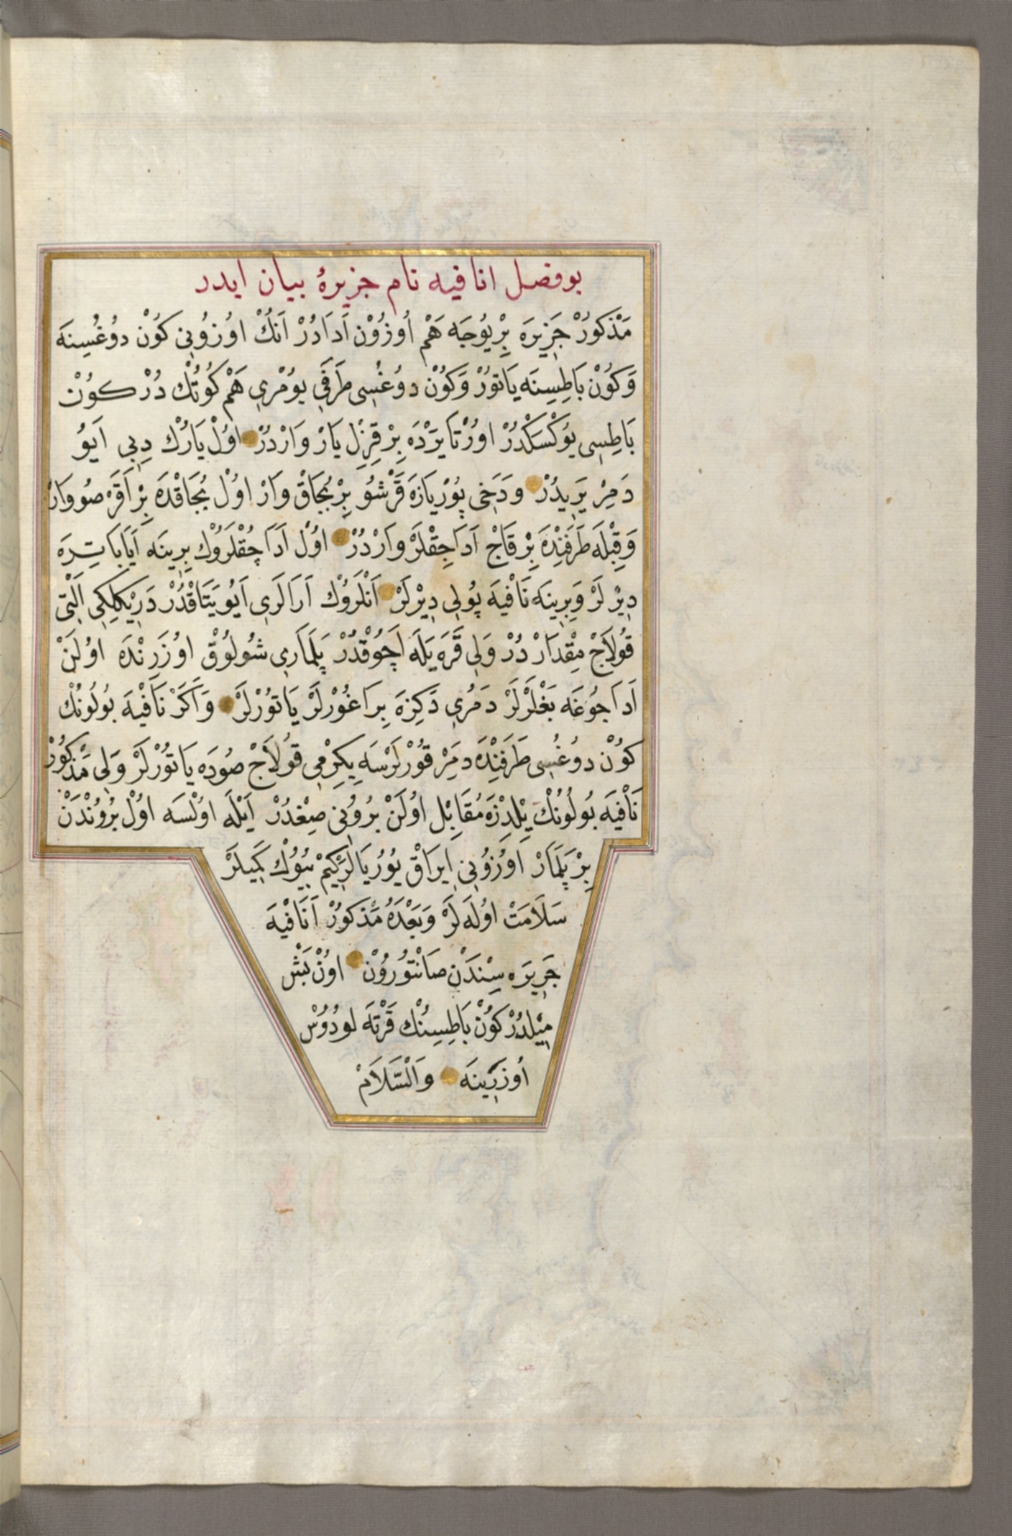 بو فصل انافیه نام جزیرهٔ بیان ایدر
مَذْکُورْ جَزِیرَه بِرْ یُوجَه هَمْ اُوزُوْن اَدَادُرْ اَنُکْ اوُزُونِی کُوْنْ دوُغُسِنَه
وَکُوْنْ بَاطِسِنَه یَاتوُرْ وَکُوْنْ دوُغْسِی طَرَفِی یوُمْرِی هَمْ کُوتُکْ دُرْ کوُنْ
بَاطِسِی یوُکْسَکْدُرْ اوُرْتَا یَرْدَه بِرْ قِزِل یَارْ وَارْدُرْ اوُل یَارُکْ دِبِی اَیوُ
دَمِرْ یَرِیدُرْ وَدَخِی بُوْ یَارَه قَرْشُو بِرْ بُجَاقْ وَارْ اوُلْ بُجَاقْدَه بِرْ اَقَرْ صُو وَارْ
وَقِبْلَه طَرَفِنْدَه بِرْ قَاجْ اَدَاجِقْلَرْ وَارْدُرْ اوُلْ اَدَاجُقْلَرُوْکْ بِرِینَه اَیَابَاتِرَه
دِیْرْلَرْ وَبِرِینَه نَافْیَه پُولِی دِیْرْلَرْ اَنْلَرُوْکْ اَرَالَرِی اَیُو یَتَاقْدُرْ دَرِیْکْلِکِی اَلْتِی
قُولَاجْ مِقْدَارْ دُرْ وَلِی قَرَه یَلَه اَچُوْقْدُرْ پَلَمَارِی شُولُوْقْ اوُزَرِنْدَه اوُلَنْ
اَدَاجُوغَه بَغْلَرْلَرْ دَمُرِی دَکِزَه بِرَاغُوْرْلَرْ یَاتُوْرْلَرْ وَاَکَرْ نَافْیَه بُولُونُکْ
کوُنْ دوُغُسِی طَرَفِنْدَه دمِرْ قوُرْلَرْسَه یِکِرْمِی قوُلَاجْ صُودَه یَاتُوْرْلَرْ وَلِی مَذْکُورْ
نَافْیَه بُولُونُکْ یِلْدِزَه مُقَابِل اوُلَنْ بُرُونِی صِغْدُرْ اَیْلَه اوُلْسَه اوُلْ بُرُونْدَنْ
بِرْ پَلَمَارْ اوُزُونِی اِیرَاقْ یوُرُیَالَرْکِمْ بُیُوْکْ کَمِیلَرْ
سَلَامَتْ اوُلَه لَرْ وَبَعْدَهُ مَذْکُورْ اَنَافْیَه
جَزِیرَه سِنْدَنْ صَانْتُورُوْنْ اوُنْ بَشْ
مِیْلدُرْ کُوْنْ بَاطِسِنُکْ قَرْتَه لودُوْسْ
اُوزَرِینَه وَالسَّلَامْ